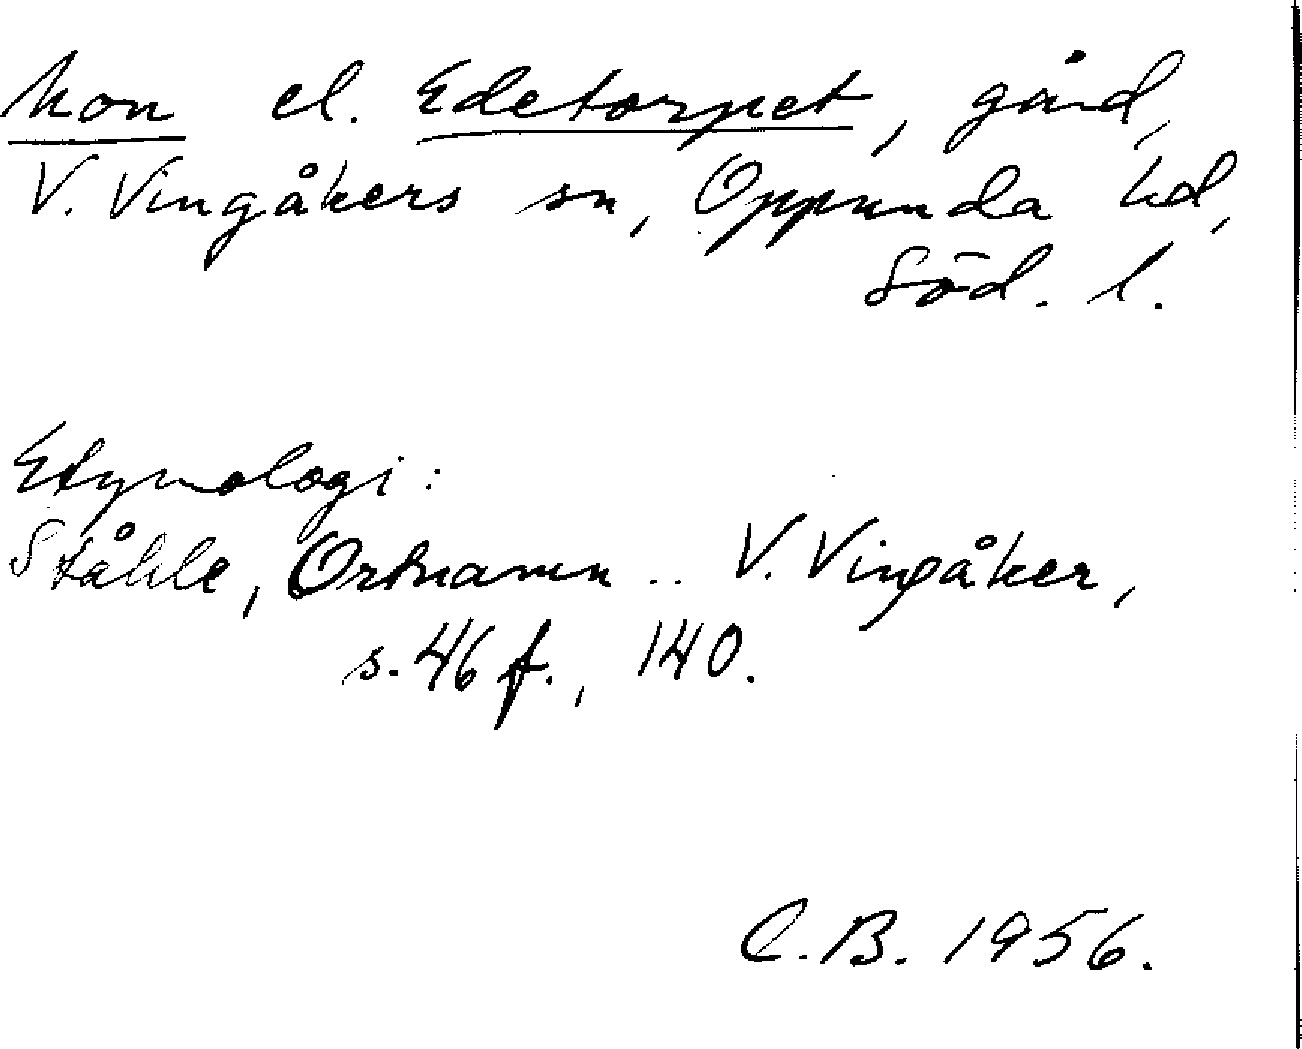 Mon el. Edetorpet, gård,
V. Vingåkers sn, Oppunda hd,
Söd. l.
Etymologi:
Ståhle, Ortnamn .. V. Vingåker,
s. 46 f., 140.
C.B. 1956.